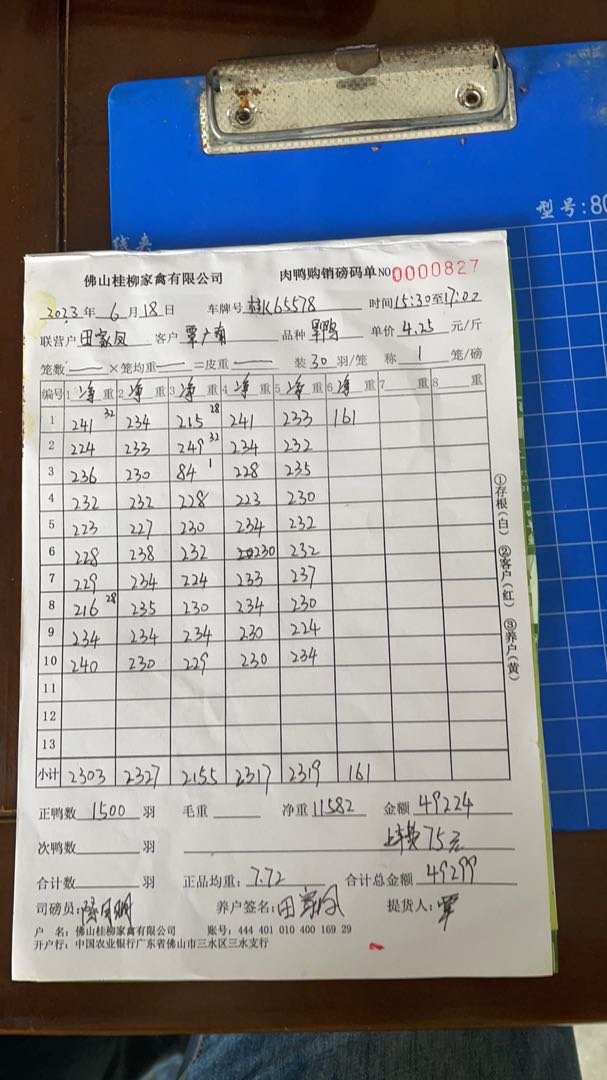 型号:80
佛山桂柳家禽有限公司 肉鸭购销磅码单 NO 0000827
2023年 6月18日 车牌号 K65578 时间15:30至17:02
联营户 田家凤 客户 覃广南 品种 单价 4.25 元/斤
笼数 — ×笼均重 — =皮重 — 装 30 羽/笼 称 1 笼/磅
编号 1 净重 2 净重 3 净重 4 净重 5 净重 6 净重 7 重 8 重
1 241 32 234 215 28 241 233 161
2 224 233 249 32 234 232
3 236 230 84 1 228 235
4 232 232 228 223 230
5 223 227 230 234 232
6 228 238 232 230 232
7 229 234 224 233 237
8 216 28 235 230 234 230
9 234 234 234 230 224
10 240 230 229 230 234
11
12
13
小计 2303 2327 2155 2317 2319 161
①存根(白) ②客户(红) ③养户(黄)
正鸭数 1500 羽 毛重 净重 11582 金额 49224
次鸭数 羽 上车费75元
合计数 羽 正品均重: 7.72 合计总金额 49299
司磅员: 养户签名: 田家凤 提货人: 覃
户 名: 佛山桂柳家禽有限公司 账号: 444 401 010 400 169 29
开户行: 中国农业银行广东省佛山市三水区三水支行